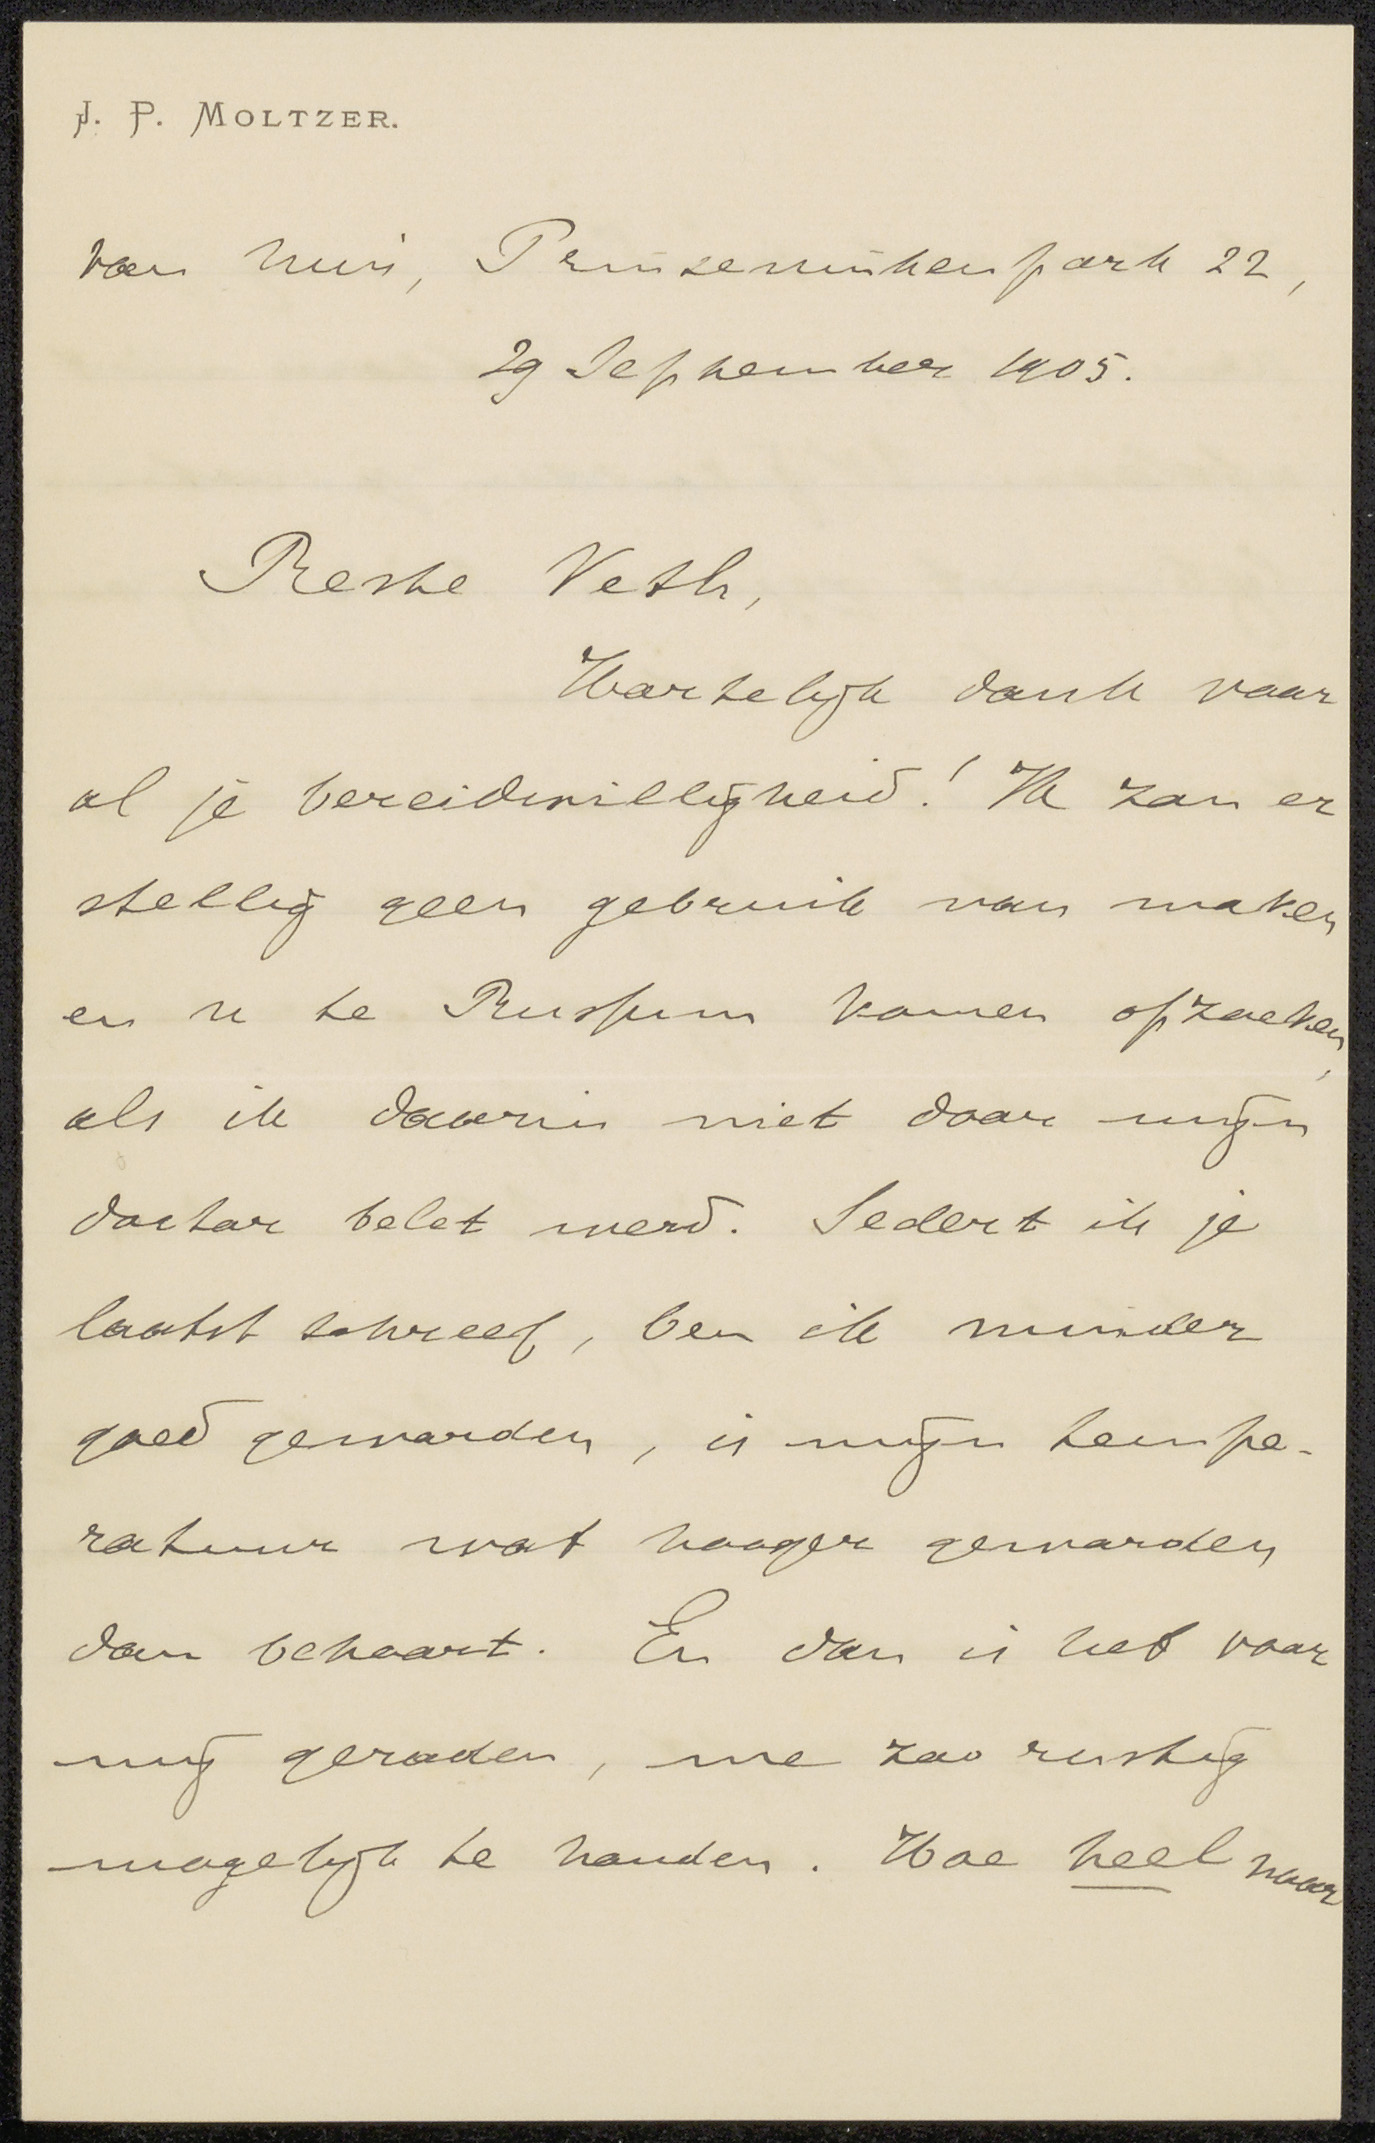 J. P. MOLTZER.
van huis, Prinsessinkenpark 22,
29 September 1905.
Beste Veth,
Hartelijk dank voor
al je bereidwilligheid! Ik zou er
stellig geen gebruik van maken
en u te Bussum komen opzoeken,
als ik daarin niet door mijn
doctor belet werd. Sedert ik je
laatst schreef, ben ik minder
goed geworden, is mijn tempe-
ratuur wat hooger geworden
dan behoort. En dan is het voor
mij geraden, me zoo rustig
mogelijk te houden. Hoe heel naar